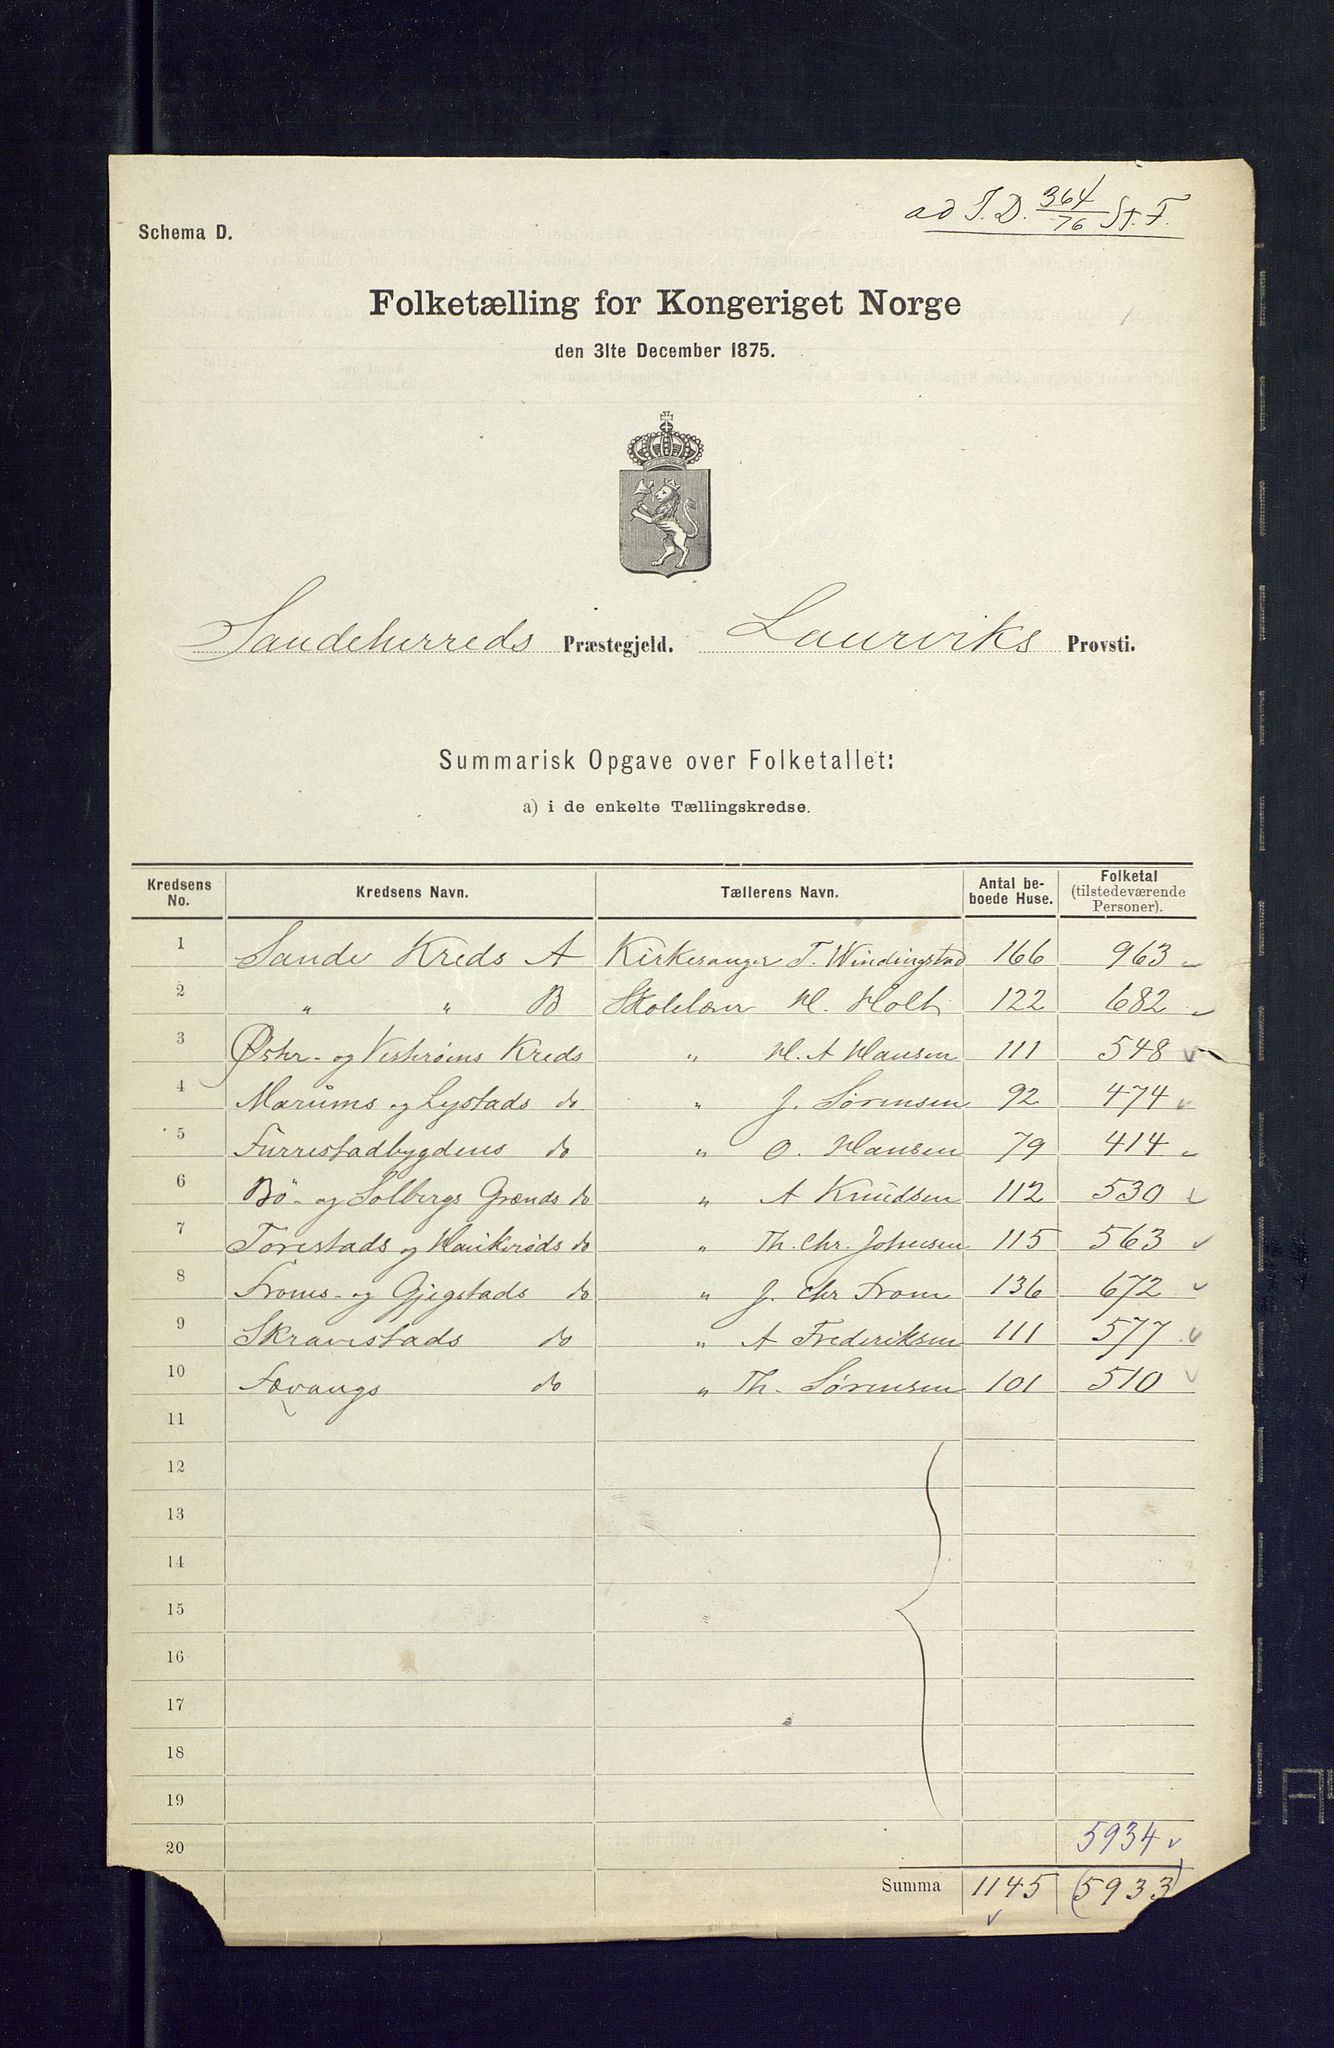 ad J.D. 364/76 St. F.
Schema D.
Folketælling for Kongeriget Norge
den 31te December 1875.
Sandeherreds Præstegjeld. Laurviks Provsti.
Summarisk Opgave over Folketallet:
a) i de enkelte Tællingskredse.
Kredsens No. Kredsens Navn. Tællerens Navn. Antal beboede Huse. Folketal (tilstedeværende Personer).
1 Sande Kreds A Kirkesanger T. Windingstad 166 963
2 " " B Skolelærer H. Holt 122 682
3 Østr- og Vestrøms Kreds " H. A Hansen 111 548
4 Marums og Lystads do " J. Sørensen 92 474
5 Furrestadbygdens do " O. Hansen 79 414
6 Bö- og Solbergs Grænds do " A Knudsen 112 530
7 Torestads og Haukerøds do " Th. Chr. Johnsen 115 563
8 Froms- og Gjegstads do " J. Chr From 136 672
9 Skravestads do " A Frederiksen 111 577
10 Fævangs do " Th. Sørensen 101 510
11
12
13
14
15
16
17
18
19
20 5934
Summa 1145 (5933)